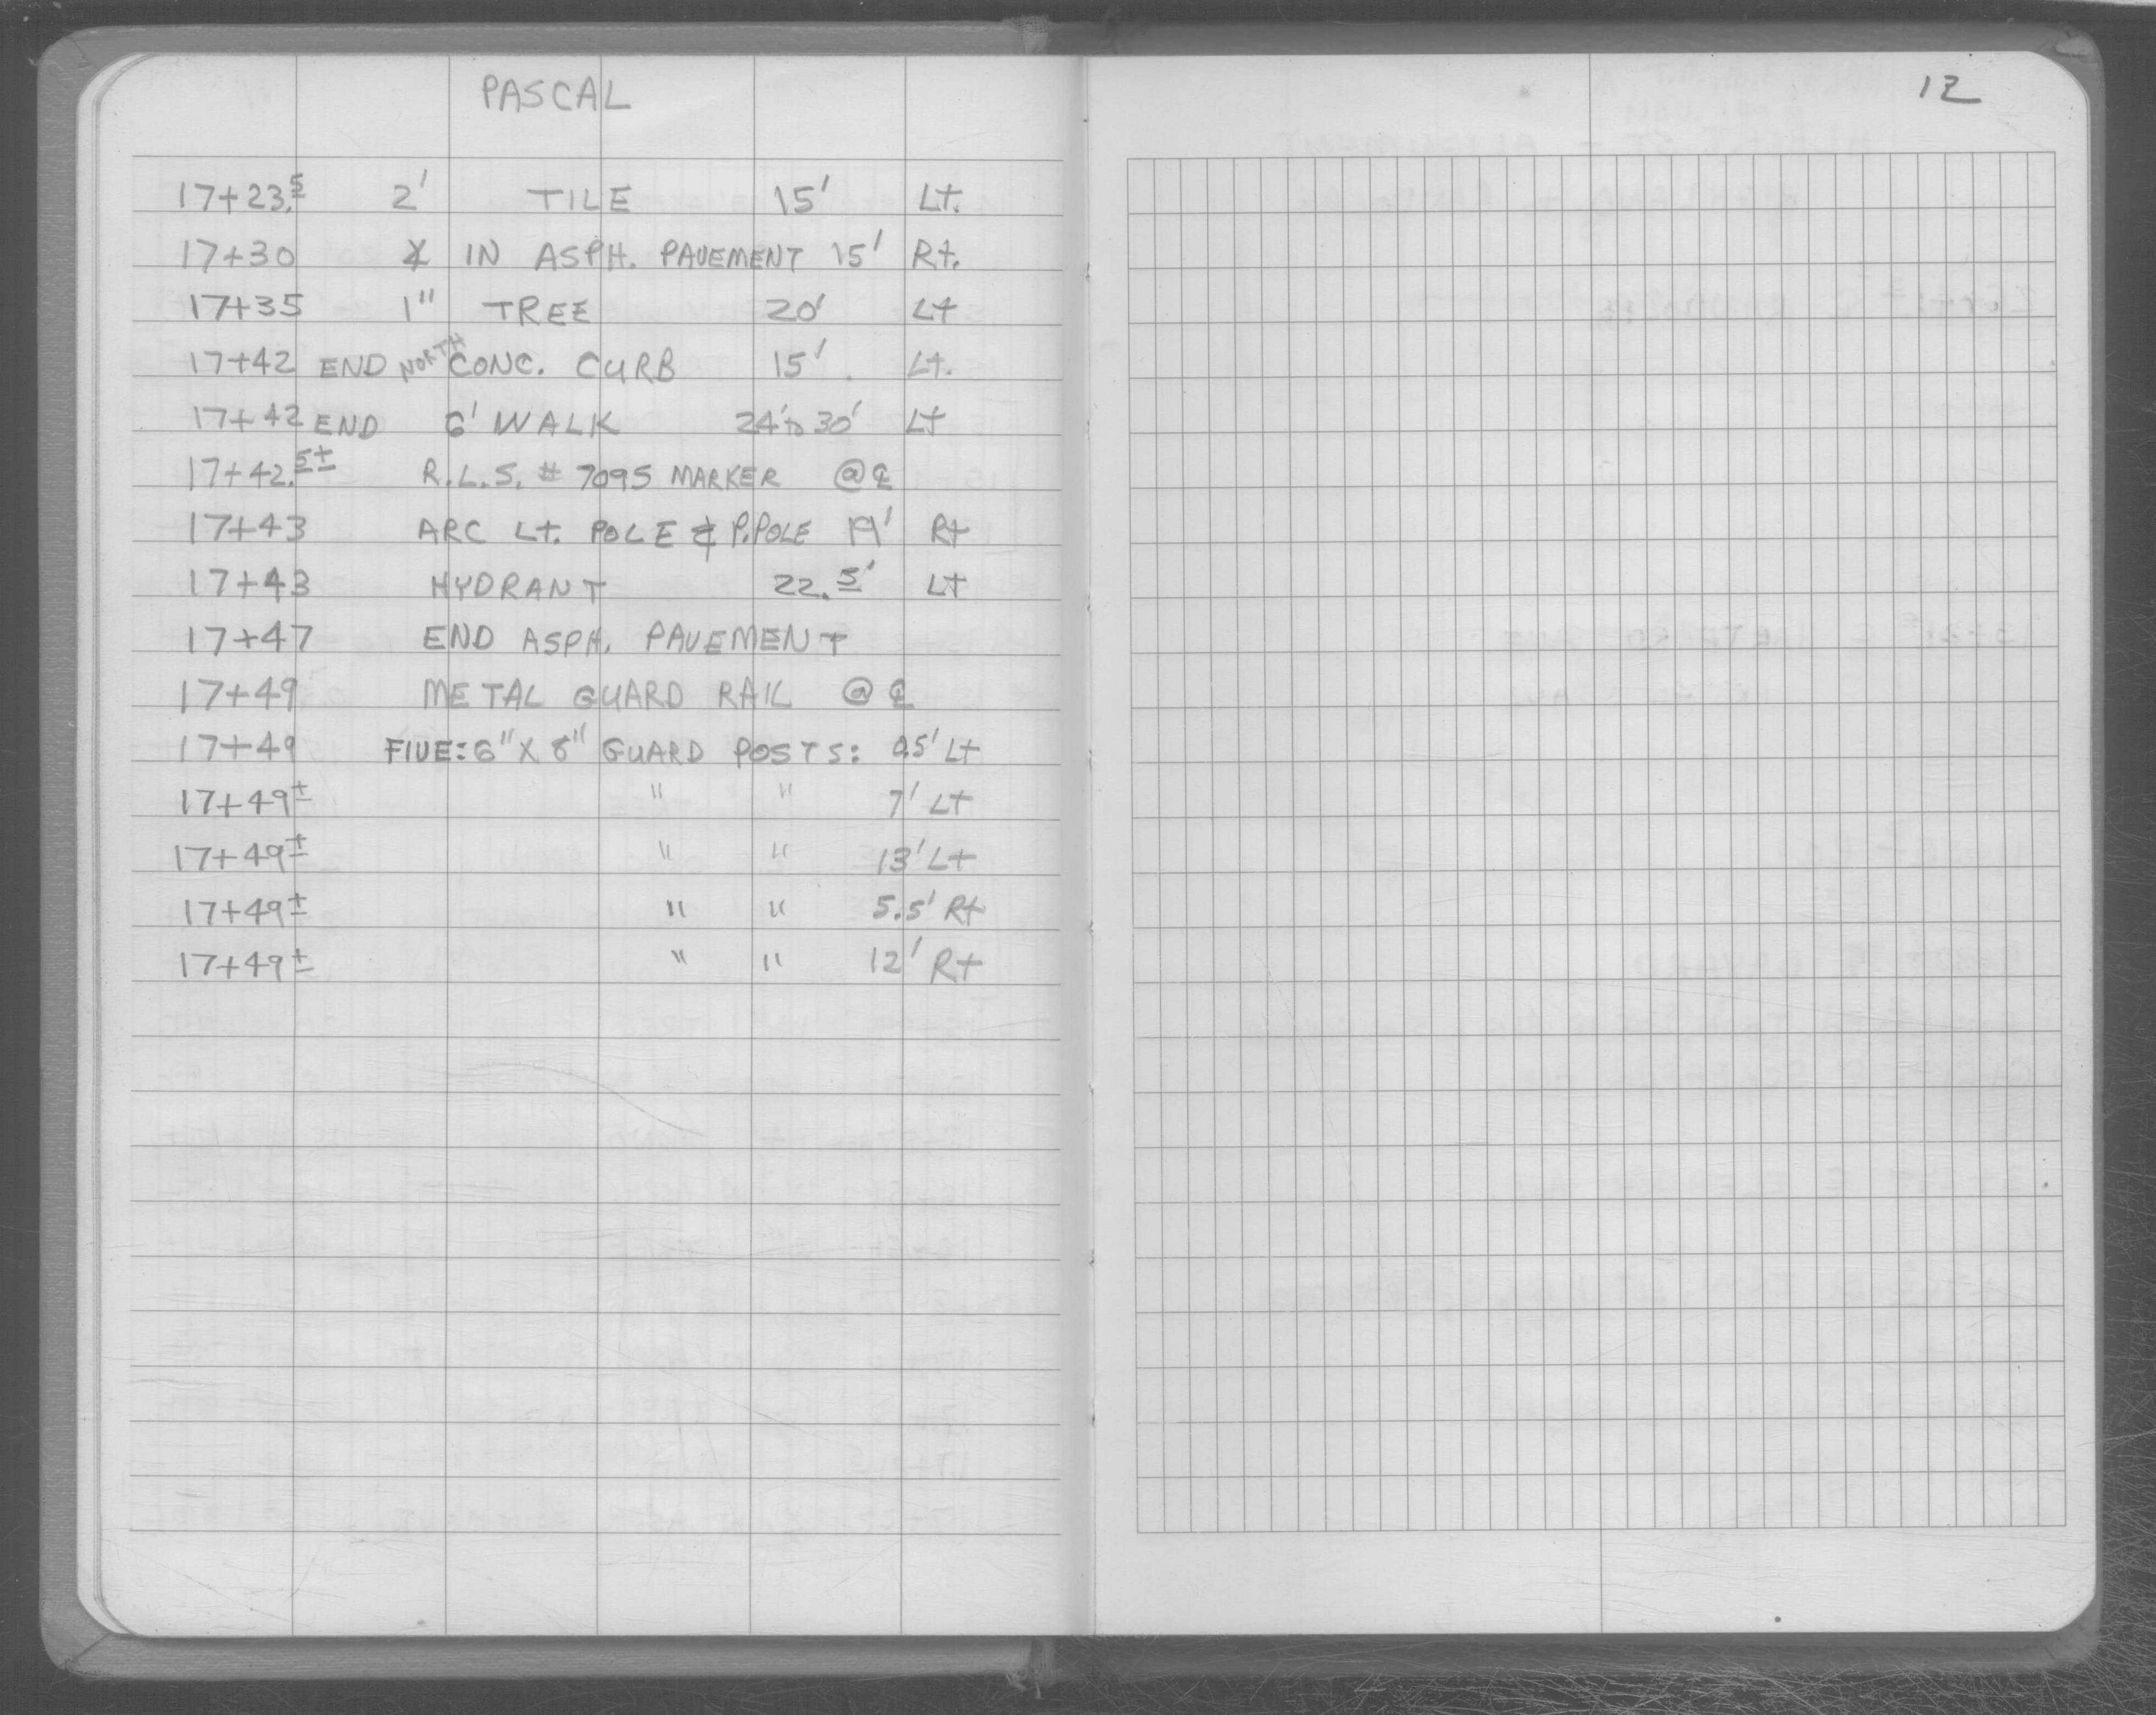 PASCAL
12
17+23.5 2' TILE 15' Lt.
17+30 X IN ASPH. PAVEMENT 15' Rt.
17+35 1" TREE 20' Lt
17+42 END NORTH CONC. CURB 15' Lt.
17+42 END 6' WALK 24' to 30' Lt
17+42.5± R.L.S. # 7095 MARKER @ ℄
17+43 ARC Lt. POLE & P.POLE 19' Rt
17+43 HYDRANT 22.5' Lt
17+47 END ASPH. PAVEMENT
17+49 METAL GUARD RAIL @ ℄
17+49 FIVE: 6" X 8" GUARD POSTS: 0.5' Lt
17+49± " " 7' Lt
17+49± " " 13' Lt
17+49± " " 5.5' Rt
17+49± " " 12' Rt